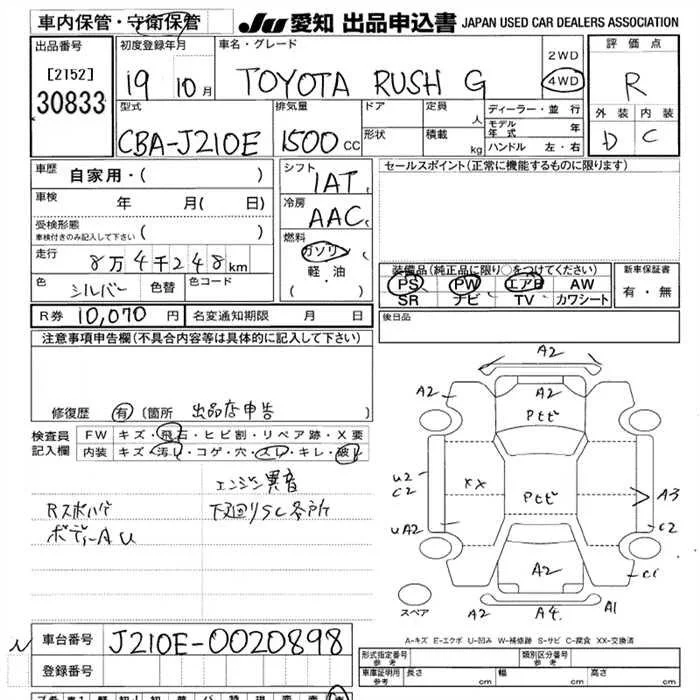 車内保管・守衛保管
JU 愛知 出品申込書 JAPAN USED CAR DEALERS ASSOCIATION
出品番号
[2152]
30833
初度登録年月
19 10月
車名・グレード
TOYOTA RUSH G
2WD
4WD
評価点
R
外装 内装
D C
型式
CBA-J210E
排気量
1500cc
ドア
形状
定員
人
積載
kg
ディーラー・並行
モデル年式 年
ハンドル 左・右
車歴
自家用・( )
車検
年 月( 日)
受検形態
車検付きのみ記入して下さい
( )
走行
8万4千248km
色
シルバー
色替
色コード
シフト
1AT
冷房
AAC
燃料
ガソリン
軽・油
( ・ )
セールスポイント(正常に機能するものに限ります)
装備品(純正品に限り○をつけてください)
PS PW エアB AW
SR ナビ TV カワシート
新車保証書
有・無
R券 10,070円
名変通知期限 月 日
後日品
注意事項申告欄(不具合内容等は具体的に記入して下さい)
修復歴 有 〔箇所 出品店申告 〕
検査員
記入欄
FW キズ・飛石・ヒビ割・リペア跡・X要
内装 キズ・汚れ・コゲ・穴・スレ・キレ・破れ
エンジン異音
下廻りSC各所
ボディーAU
A2
A2
A2
Pセビ
U2
C2
XX
Pセビ
A3
UA2
C2
A2
C1
スペア
A2
A4.
A1
A-キズ E-エクボ U-凹み W-補修跡 S-サビ C-腐食 XX-交換済
車台番号
J210E-0020898
登録番号
形式指定番号
参考
類別区分番号
参考
車庫証明用
参考
長さ cm
幅 cm
高さ cm